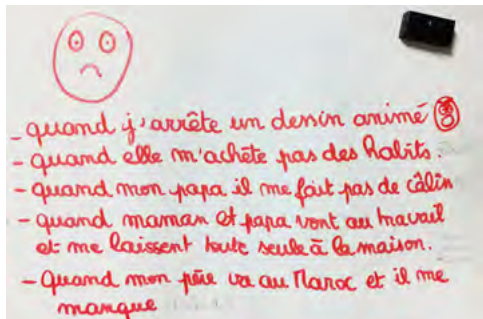 - quand j'arrête un dessin animé
- quand elle m'achète pas des habits.
- quand mon papa il me fait pas de câlin
- quand maman et papa vont au travail
et me laissent toute seule à la maison.
- Quand mon père va au Maroc et il me
manque